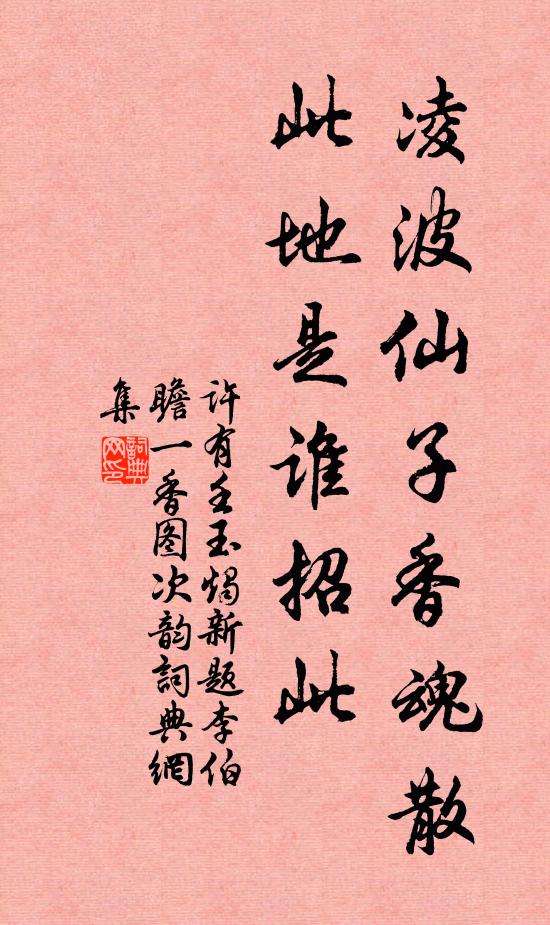 凌波仙子香魂散
此地是谁招此
许有壬玉烛新题李伯
瞻一香图次韵词典網
集
詞典網印